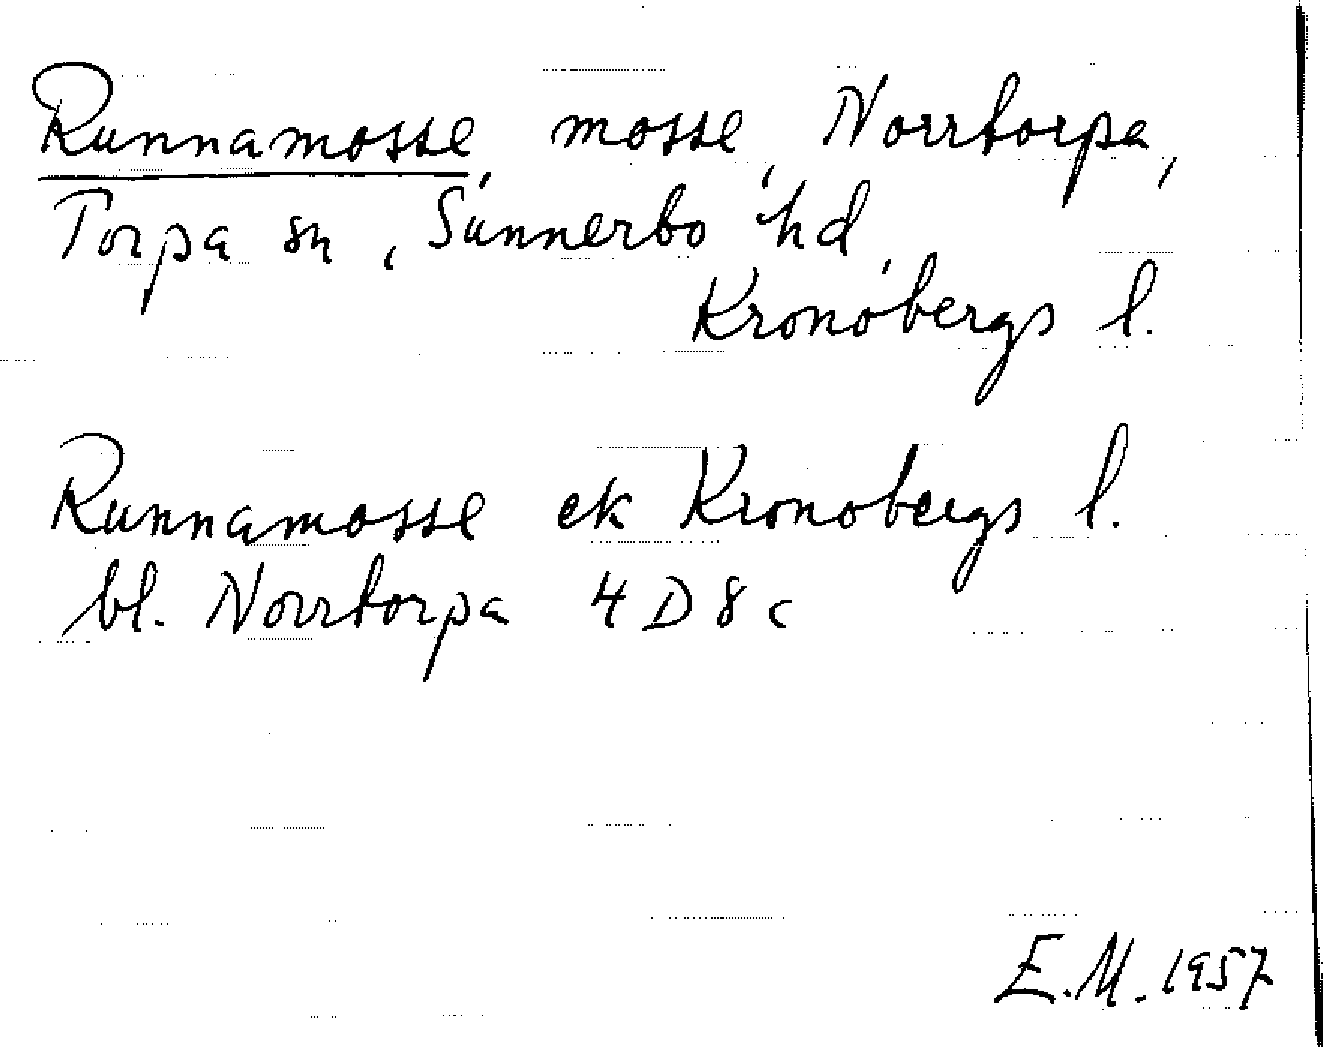 Runnamosse, mosse, Norrtorpa,
Torpa sn, Sunnerbo hd,
Kronobergs l.
Runnamosse ek Kronobergs l.
bl. Norrtorpa 4 D 8 c
E.M. 1957